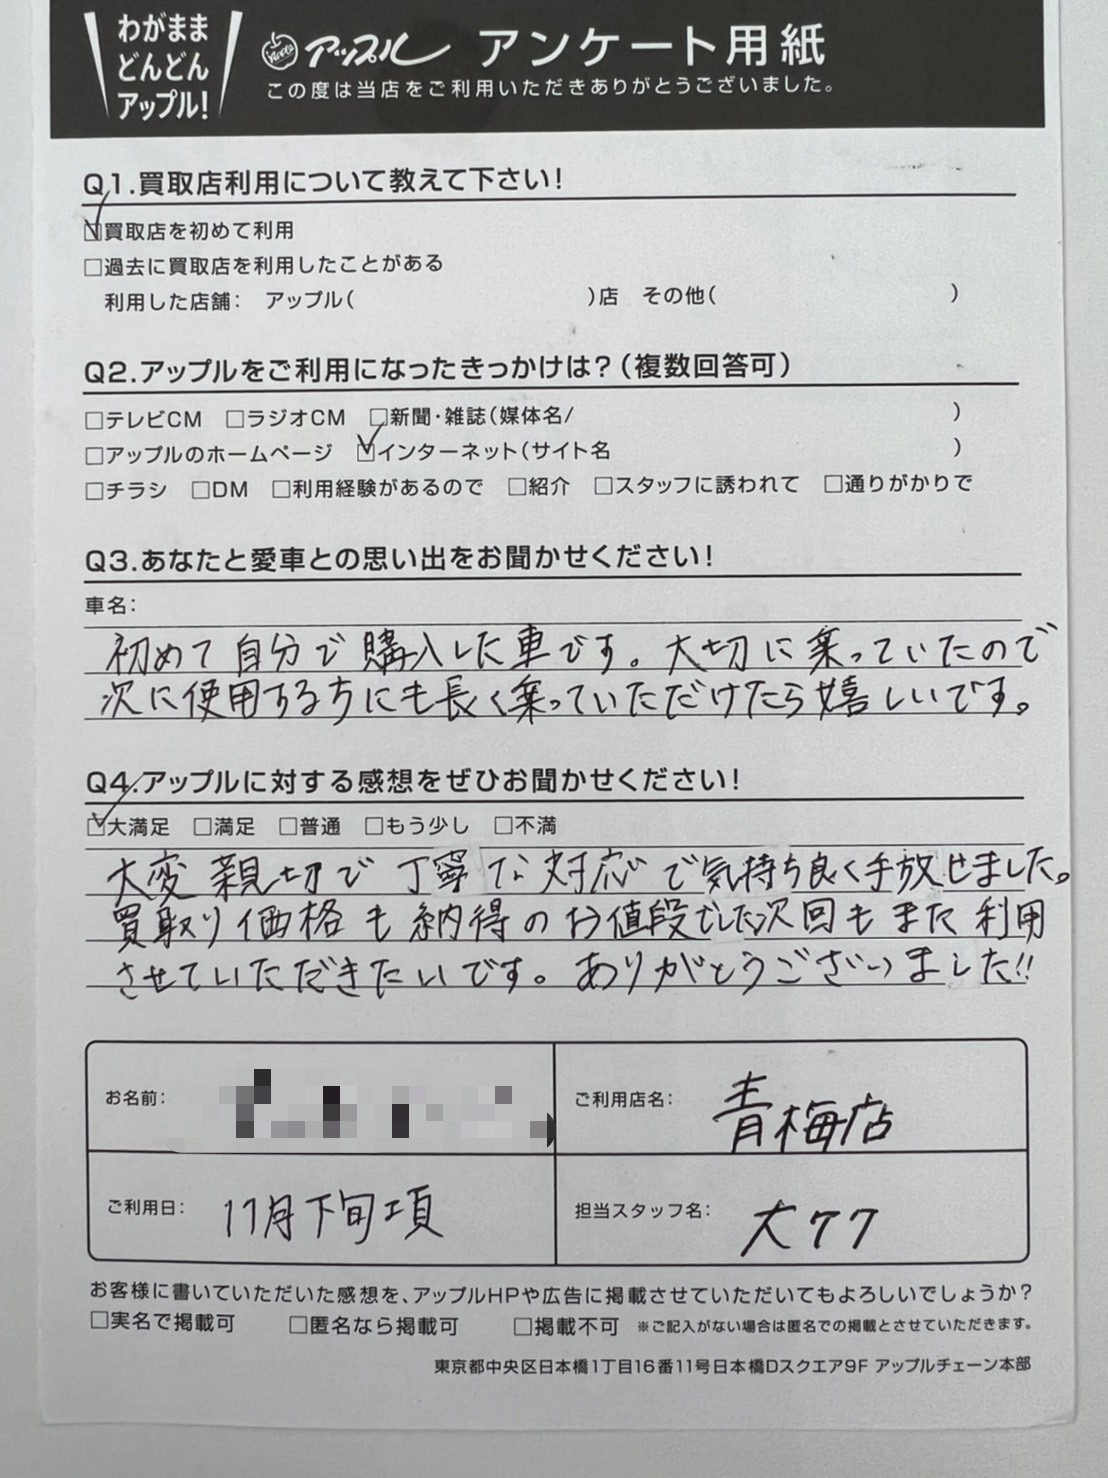 わがまま
どんどん
アップル!
アップル アンケート用紙
この度は当店をご利用いただきありがとうございました。
Q1.買取店利用について教えて下さい!
☑買取店を初めて利用
□過去に買取店を利用したことがある
利用した店舗: アップル( )店 その他( )
Q2.アップルをご利用になったきっかけは?(複数回答可)
□テレビCM □ラジオCM □新聞・雑誌(媒体名/ )
□アップルのホームページ ☑インターネット(サイト名 )
□チラシ □DM □利用経験があるので □紹介 □スタッフに誘われて □通りがかりで
Q3.あなたと愛車との思い出をお聞かせください!
車名:
初めて自分で購入した車です。大切に乗っていたので
次に使用する方にも長く乗っていただけたら嬉しいです。
Q4.アップルに対する感想をぜひお聞かせください!
☑大満足 □満足 □普通 □もう少し □不満
大変親切で丁寧な対応で気持ち良く手放せました。
買取り価格も納得のお値段でした次回もまた利用
させていただきたいです。ありがとうございました!!
お名前:
ご利用店名: 青梅店
ご利用日: 11月下旬頃
担当スタッフ名:
お客様に書いていただいた感想を、アップルHPや広告に掲載させていただいてもよろしいでしょうか?
□実名で掲載可 □匿名なら掲載可 □掲載不可 ※ご記入がない場合は匿名での掲載とさせていただきます。
東京都中央区日本橋1丁目16番11号日本橋Dスクエア9F アップルチェーン本部